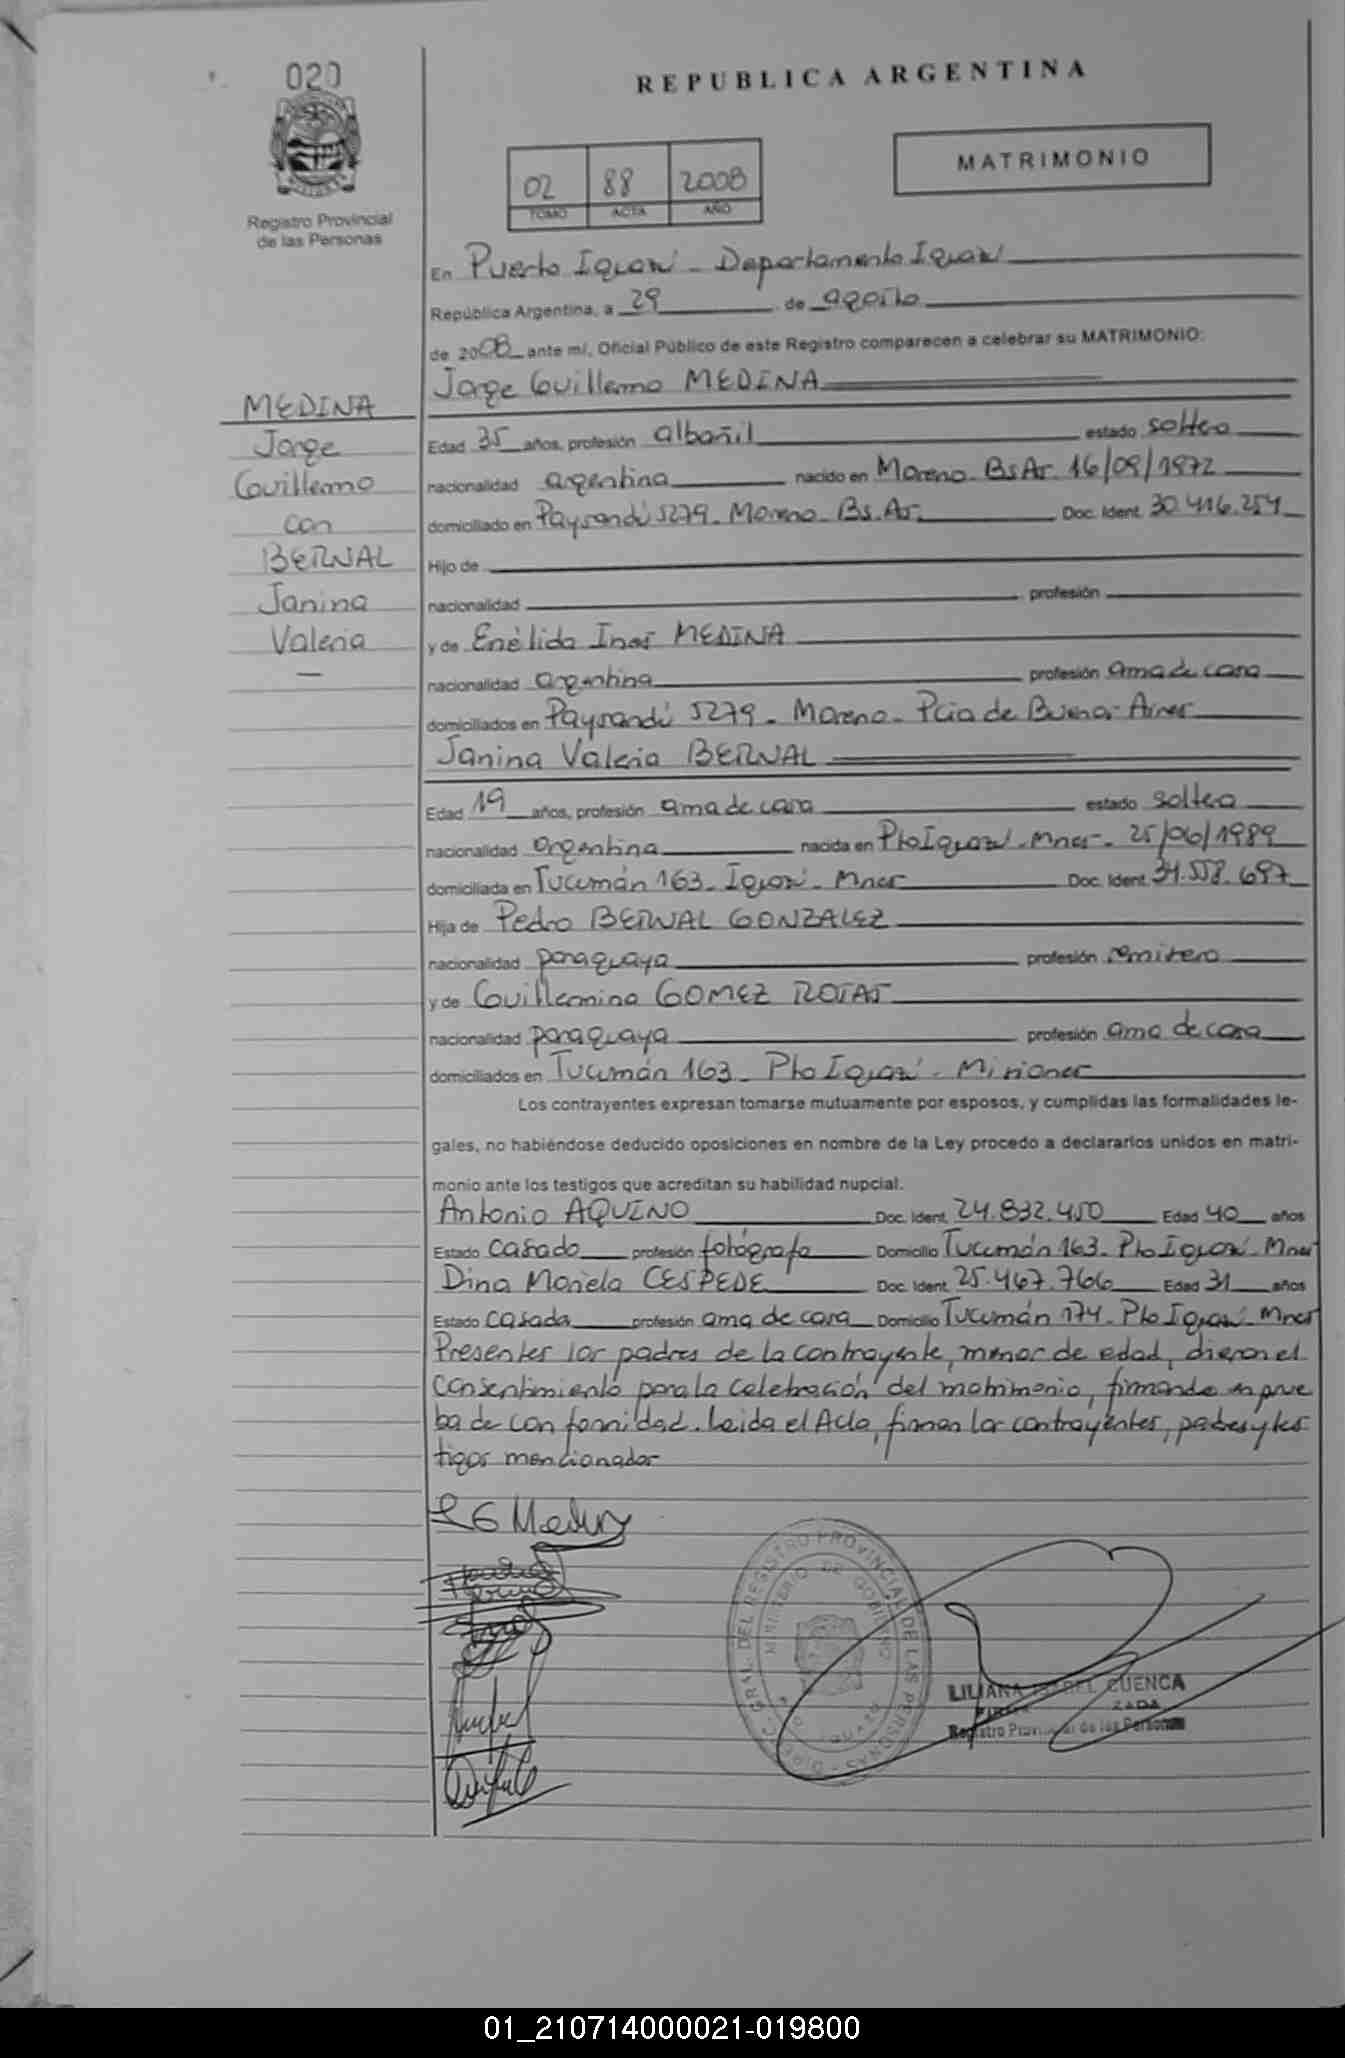 020
REPUBLICA ARGENTINA
MATRIMONIO
02 88 2008
TOMO ACTA AÑO
Registro Provincial
de las Personas
En Puerto Iguazú - Departamento Iguazú
República Argentina, a 29 de agosto
de 2008 ante mí, Oficial Público de este Registro comparecen a celebrar su MATRIMONIO:
Jorge Guillermo MEDINA
MEDINA
Jorge
Guillermo
con
BERNAL
Janina
Valeria
—
Edad 35 años, profesión albañil estado soltero
nacionalidad argentina nacido en Moreno - Bs As. 16/09/1972
domiciliado en Paysandú 5279 - Moreno - Bs. As. Doc. Ident. 30.416.254
Hijo de
nacionalidad profesión
y de Enélida Ines MEDINA
nacionalidad argentina profesión ama de casa
domiciliados en Paysandú 5279 - Moreno - Pcia de Buenos Aires
Janina Valeria BERNAL
Edad 19 años, profesión ama de casa estado soltera
nacionalidad argentina nacida en Pto Iguazú - Mnes - 25/06/1989
domiciliada en Tucumán 163 - Iguazú - Mnes Doc. Ident. 34.558.697
Hija de Pedro BERNAL GONZALEZ
nacionalidad paraguaya profesión remisero
y de Guillermina GOMEZ ROJAS
nacionalidad paraguaya profesión ama de casa
domiciliados en Tucumán 163 - Pto Iguazú - Misiones
Los contrayentes expresan tomarse mutuamente por esposos, y cumplidas las formalidades le-
gales, no habiéndose deducido oposiciones en nombre de la Ley procedo a declararlos unidos en matri-
monio ante los testigos que acreditan su habilidad nupcial.
Antonio AQUINO Doc. Ident. 24.832.450 Edad 40 años
Estado casado profesión fotógrafo Domicilio Tucumán 163 - Pto Iguazú - Mnes
Dina Mariela CESPEDE Doc. Ident. 25.467.766 Edad 31 años
Estado casada profesión ama de casa Domicilio Tucumán 174 - Pto Iguazú - Mnes
Presentes los padres de la contrayente, menor de edad, dieron el
consentimiento para la celebración del matrimonio, firmando en prue
ba de conformidad. Leida el Acta, firman los contrayentes, padres y tes
tigos mencionados
DIREC. GRAL. DEL REGISTRO PROVINCIAL DE LAS PERSONAS
MINISTERIO DE GOBIERNO
LILIANA ISABEL CUENCA
Registro Provincial de las Personas
01_210714000021-019800